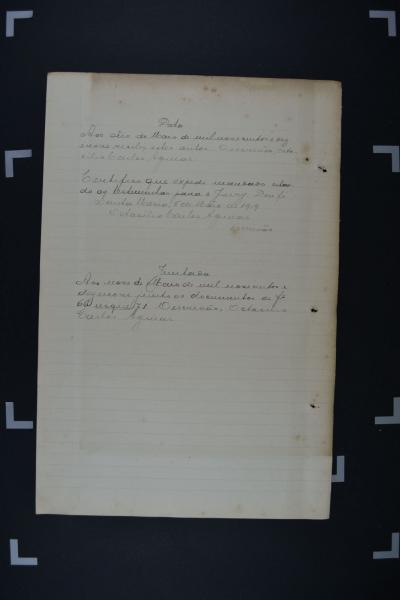 Data
Aos oito de Maio de mil novecentos e dez
enove recebi estes autos. O escrivão, Octa
cilio Carlos Aguiar
Certifico que expedi mandado citan
do as testemunhas para o Jury. Dou fé
Santa Maria, 8 de Maio de 1919
Octacilio Carlos Aguiar
escrivão
Juntada
Aos nove de Maio de mil novecentos e
dezenove junto os documentos de fs
69 a 71. O escrivão, Octacilio
Carlos Aguiar